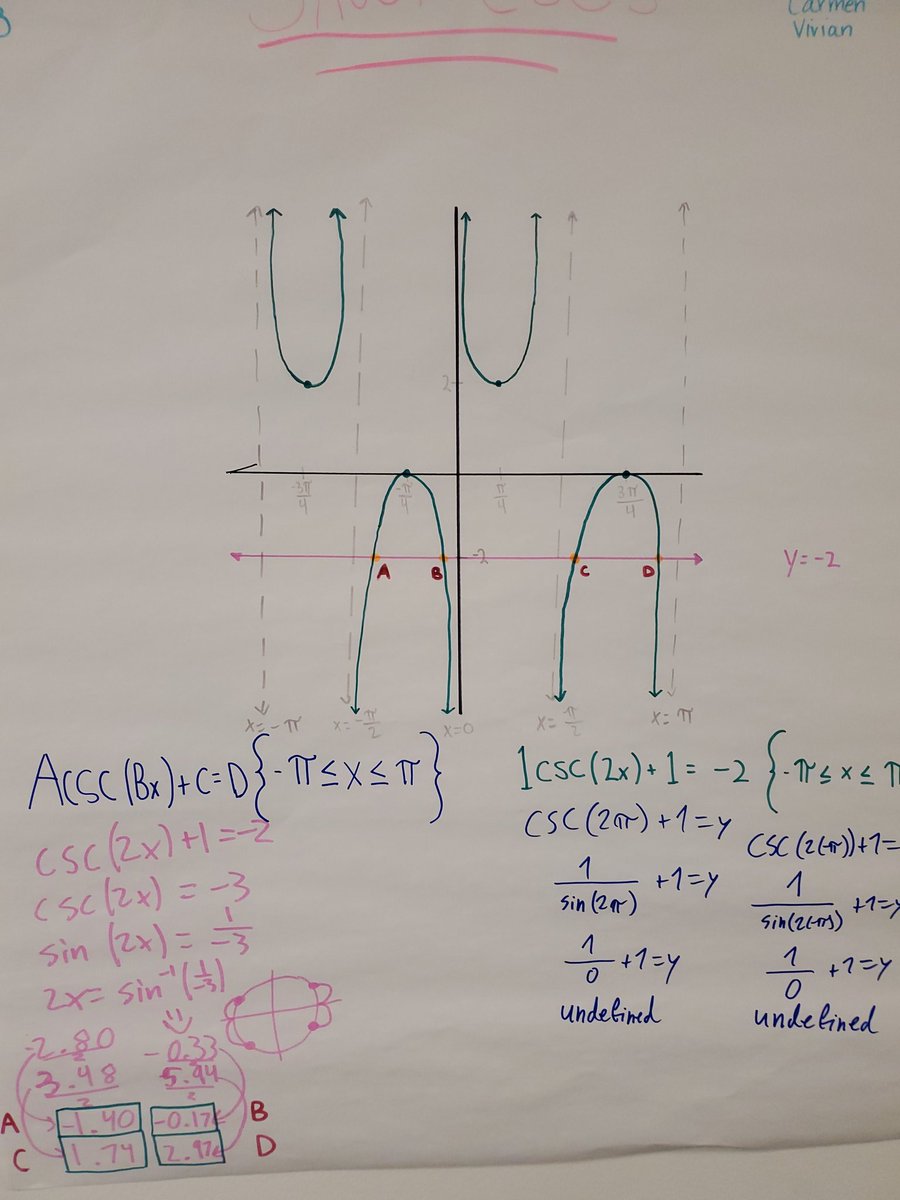 Carmen
Vivian
2
-3π/4
-π/4
π/4
3π/4
-2
y=-2
A
B
C
D
x=-π
x=-π/2
x=0
x=π/2
x=π
Acsc(Bx)+C=D{-π≤x≤π}
csc(2x)+1=-2
csc(2x)=-3
sin(2x)=1/-3
2x=sin⁻¹(1/-3)
-2.80/2 -0.33/2
3.48/2 5.94/2
A -1.40 -0.17 B
C 1.74 2.97 D
1csc(2x)+1=-2{-π≤x≤π
csc(2π)+1=y
1/sin(2π)+1=y
1/0+1=y
undefined
csc(2(-π))+1=
1/sin(2(-π))+1=y
1/0+1=y
undefined